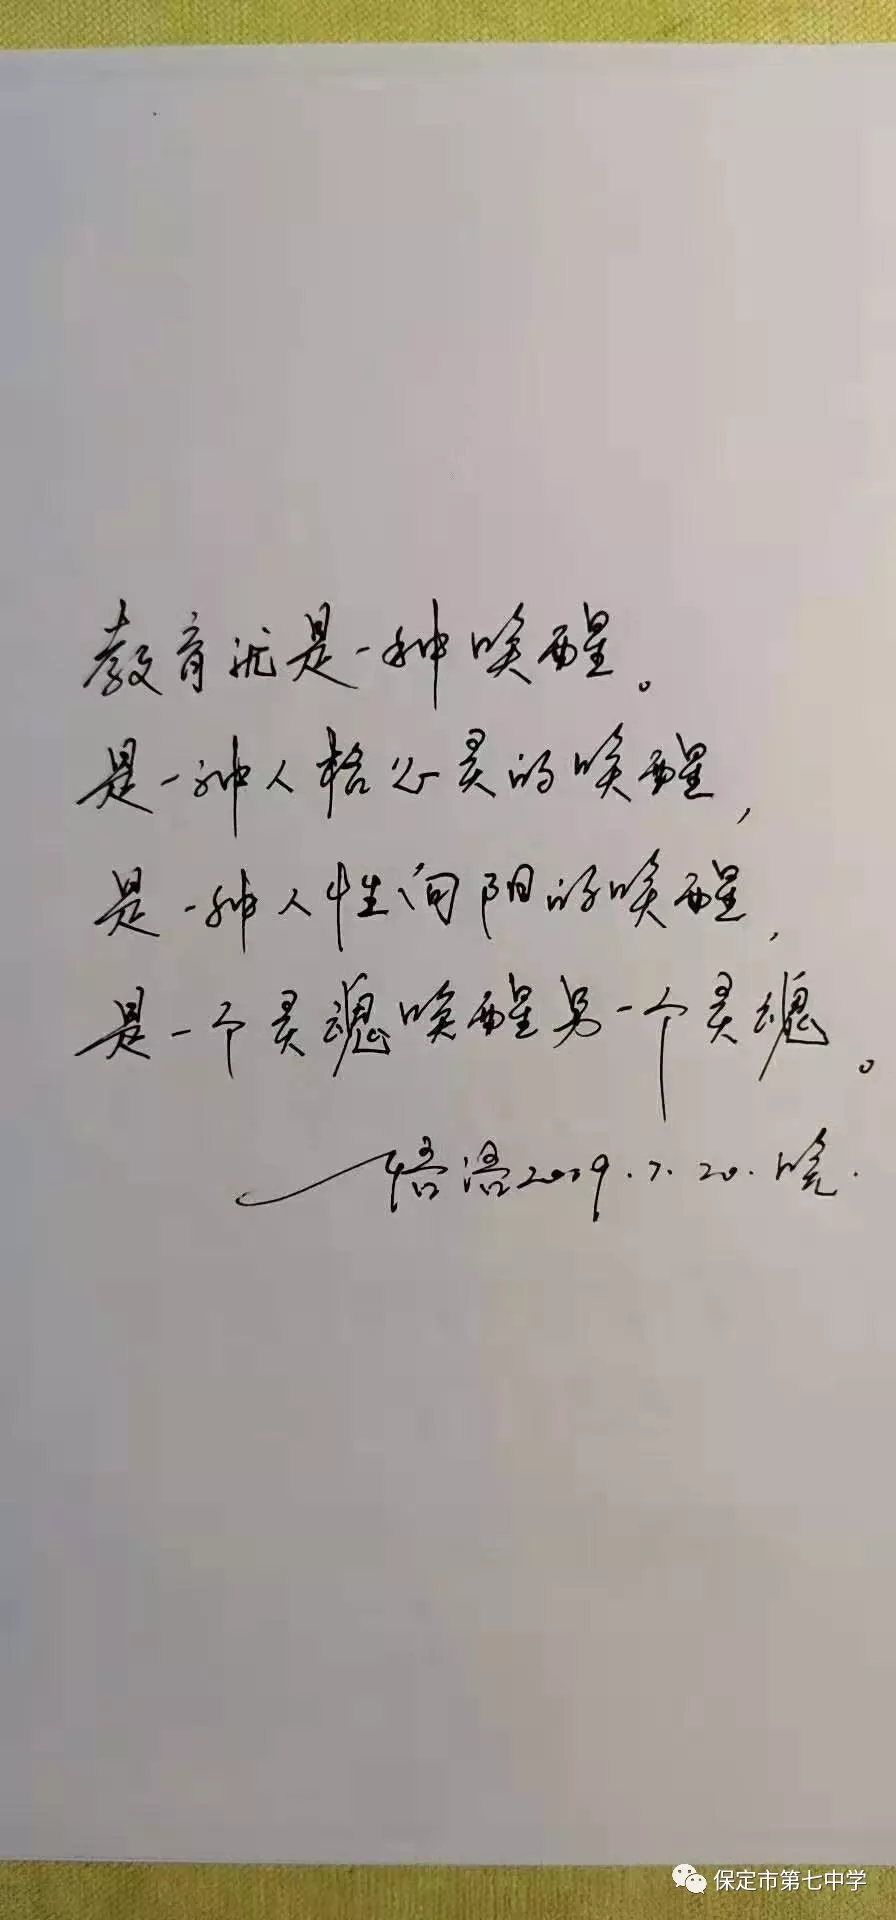 教育就是一种唤醒。
是一种人格心灵的唤醒,
是一种人性向阳的唤醒,
是一个灵魂唤醒另一个灵魂。
2019.7.20.晓.
保定市第七中学